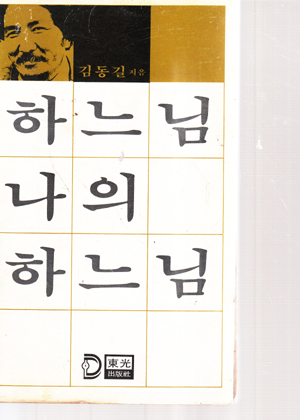 김동길 지음
하느님
나의
하느님
東光
出版社